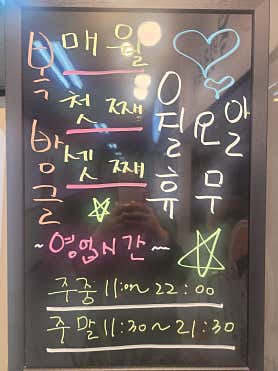 복방글
매월
첫째
셋째
월요일
휴무
~영업시간~
주중 11:00~22:00
주말 11:30~21:30